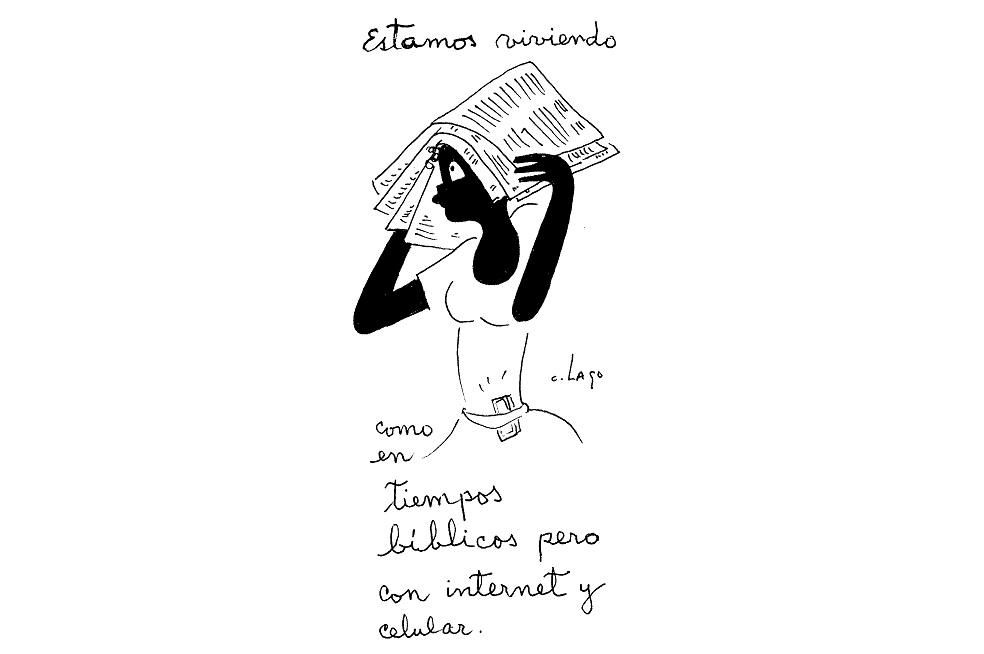 Estamos viviendo
c. Lago
como
en
tiempos
bíblicos pero
con internet y
celular.